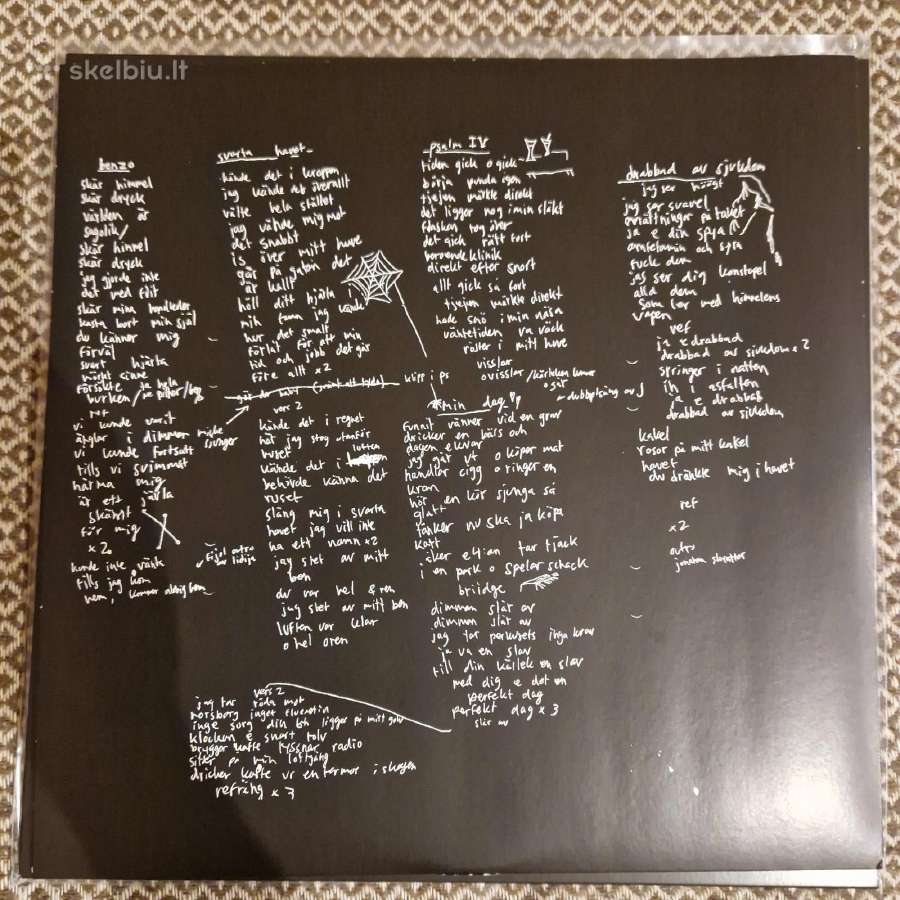 skelbiu.lt
benzo
skär himmel
skär dryck
världen är
sagolik/
skär himmel
skär dryck
jag gjorde inte
det med flit
skär mina handleder
kasta bort min själ
du känner mig
förväl
svart hjärta
mörkt sinne
försökte
burken/
ref
vi kunde varit
änglar i dimman
vi kunde fortsatt
tills vi svimmat
härma mig
är ett jävla
skämt
för mig
x 2
kunde inte vänta
tills jag kom
hem, kommer aldrig hem
svarta havet
kände det i kroppen
jag kände det överallt
välte hela stället
jag vände mig mot
det snabbt
is över mitt huve
går på gatan det
är kallt
höll ditt hjärta
min famn jag kände
hur det smalt
förlåt för att min
tid och jobb det går
före allt x2
vers 2
kände det i regnet
när jag stog utanför
huset
kände det i luften
behövde känna det
ruset
släng mig i svarta
havet jag vill inte
ha ett namn x2
jag slet av mitt
ben
du var hel & ren
jag slet av mitt ben
luften var klar
o hel oren
psalm IV
tiden gick o gick
börja punda igen
tjejen märkte direkt
det ligger nog i min släkt
fönskan tog över
det gick rätt fort
beroendeklinik
direkt efter snort
allt gick så fort
tjejen märkte direkt
hade snö i min näsa
väntetiden va väck
röster i mitt huve
visslar
o visslar /kärleken kommer
o går
klipp i ps
dubbelsång av J
min dag
funnit vänner vid en grav
dricker en bärs och
dagen e kvar
jag går ut o köper mat
handlar cigg o ringer en
kran
hör en kör sjunga så
glatt
tänker nu ska ja köpa
katt
åker e4:an tar tjack
i en park o spelar schack
briidge
dimman slår av
dimman slår av
jag tar perkusets inga krav
ja va en slav
till din kärlek en slav
med dig e det en
perfekt dag
perfekt dag x 3
slår av
drabbad av sjukdom
jag ser högt
jag ser svavel
avsättningar på taket
ja e din spya
amfetamin och spya
fuck dem
jag ser dig konstapel
alla dem
som tar med himmelens
vapen
ref
ja e drabbad
drabbad av sjukdom x 2
springer i natten
in i asfalten
ja e drabbad
drabbad av sjukdom
kakel
rosor på mitt kakel
havet
du dränkte mig i havet
ref
x2
outro
jonatan skrattar
vers 2
jag tar röda mot
norsborg inget fluerotin
inge sorg din bh ligger på mitt golv
klockan e snart tolv
brygger kaffe lyssnar radio
sitter på min loftgång
dricker kaffe ur en termos i skogen
refräng x 3